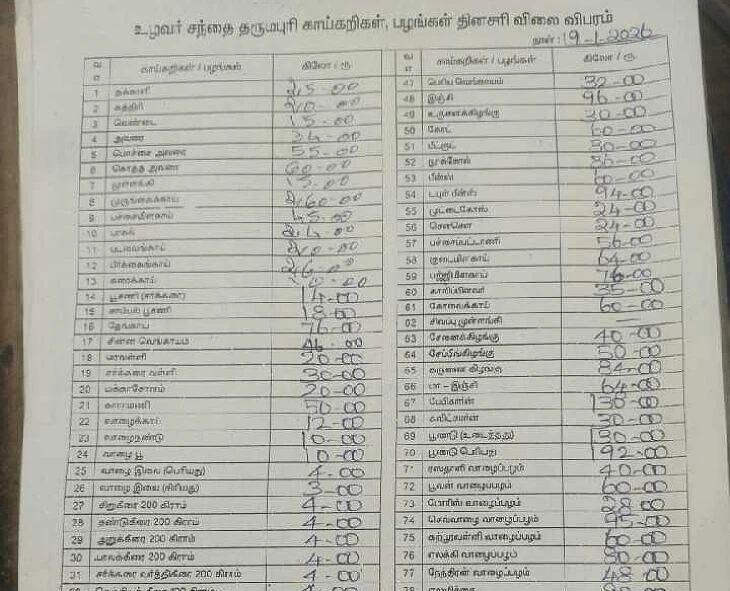 உழவர் சந்தை தருமபுரி காய்கறிகள், பழங்கள் தினசரி விலை விபரம்
நாள்: 19-1-2026
வ எ காய்கறிகள் / பழங்கள் கிலோ / ரூ
1 தக்காளி 25-00
2 கத்திரி 20-00
3 வெண்டை 15-00
4 அவரை 34-00
5 பொச்சை அவரை 55-00
6 கொத்த அவரை 60-00
7 முள்ளங்கி 15-00
8 முருங்கைக்காய் 260-00
9 பச்சைமிளகாய் 45-00
10 பாகல் 24-00
11 புடலைங்காய் 20-00
12 பீர்க்கைங்காய் 26-00
13 சுரைக்காய்
14 பூசணி (சர்க்கரை) 14-00
15 சாம்பல் பூசணி 18-00
16 தேங்காய் 76-00
17 சின்ன வெங்காயம் 46-00
18 மரவள்ளி 20-00
19 சர்க்கரை வள்ளி 30-00
20 மக்காசோளம் 20-00
21 காராமணி 50-00
22 வாழைக்காய் 12-00
23 வாழைநண்டு 10-00
24 வாழை பூ 10-00
25 வாழை இலை (பெரியது) 4-00
26 வாழை இலை (சிரியது) 3-00
27 சிறுகீரை 200 கிராம் 4-00
28 தண்டுகீரை 200 கிராம் 4-00
29 அறுக்கீரை 200 கிராம் 4-00
30 பாலக்கீரை 200 கிராம் 4-00
31 சர்க்கரை வர்த்திகீரை 200 கிராம் 4-00
வ எ காய்கறிகள் / பழங்கள் கிலோ / ரூ
47 பெரிய வெங்காயம் 32-00
48 இஞ்சி 96-00
49 உருளைக்கிழங்கு 30-00
50 கேரட் 60-00
51 பீட்ரூட் 30-00
52 நூக்கோல் 36-00
53 பீன்ஸ் 60-00
54 டபுள் பீன்ஸ் 94-00
55 முட்டைகோஸ் 24-00
56 சௌசௌ 24-00
57 பச்சைப்பட்டாணி 56-00
58 குடைமிளகாய் 64-00
59 பஜ்ஜிமிளகாய் 76-00
60 காலிப்ளவர் 35-00
61 கோவைக்காய் 60-00
62 சிவப்பு முள்ளங்கி
63 சேனைக்கிழங்கு 40-00
64 சேப்பங்கிழங்கு 50-00
65 கருணை கிழங்கு 84-00
66 மா - இஞ்சி 64-00
67 பேபிகார்ன் 130-00
68 சுவீட்கார்ன் 30-00
69 பூண்டு (உடைத்தது) 130-00
70 பூண்டு பெரியது 192-00
71 ரஸ்தாளி வாழைப்பழம் 40-00
72 பூவன் வாழைப்பழம் 60-00
73 மோரிஸ் வாழைப்பழம் 28-00
74 செவ்வாழை வாழைப்பழம் 95-00
75 கற்பூரவள்ளி வாழைப்பழம் 60-00
76 ஏலக்கி வாழைப்பழம் 80-00
77 நேந்திரன் வாழைப்பழம் 48-00